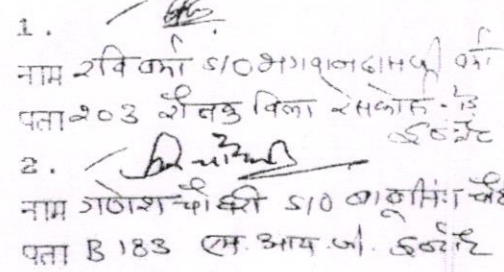 1.
नाम रवि वर्मा S/O भगवानदासजी वर्मा
पता 203 रौनक विला रेसकोर्स रोड
इन्दौर
2.
नाम गणेश चौधरी S/O बाबूसिंग
पता B 183 एम. आय. जी. इन्दौर